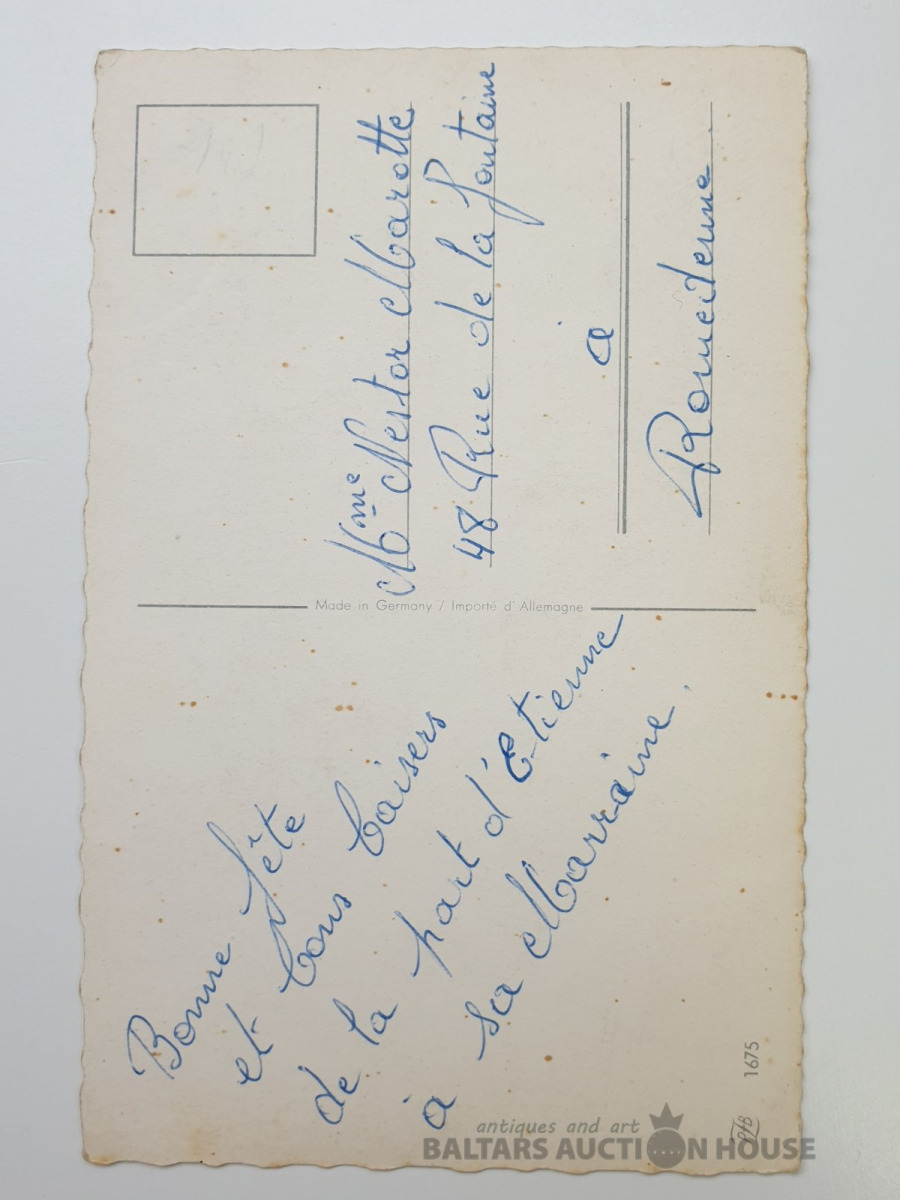 Bonne fête
et bons baisers
de la part d'Etienne
à sa Marraine.
1675
Made in Germany / Importé d'Allemagne
Mme Nestor Marotte
48 Rue de la fontaine
à
Romedenne
antiques and art
BALTARS AUCTION HOUSE